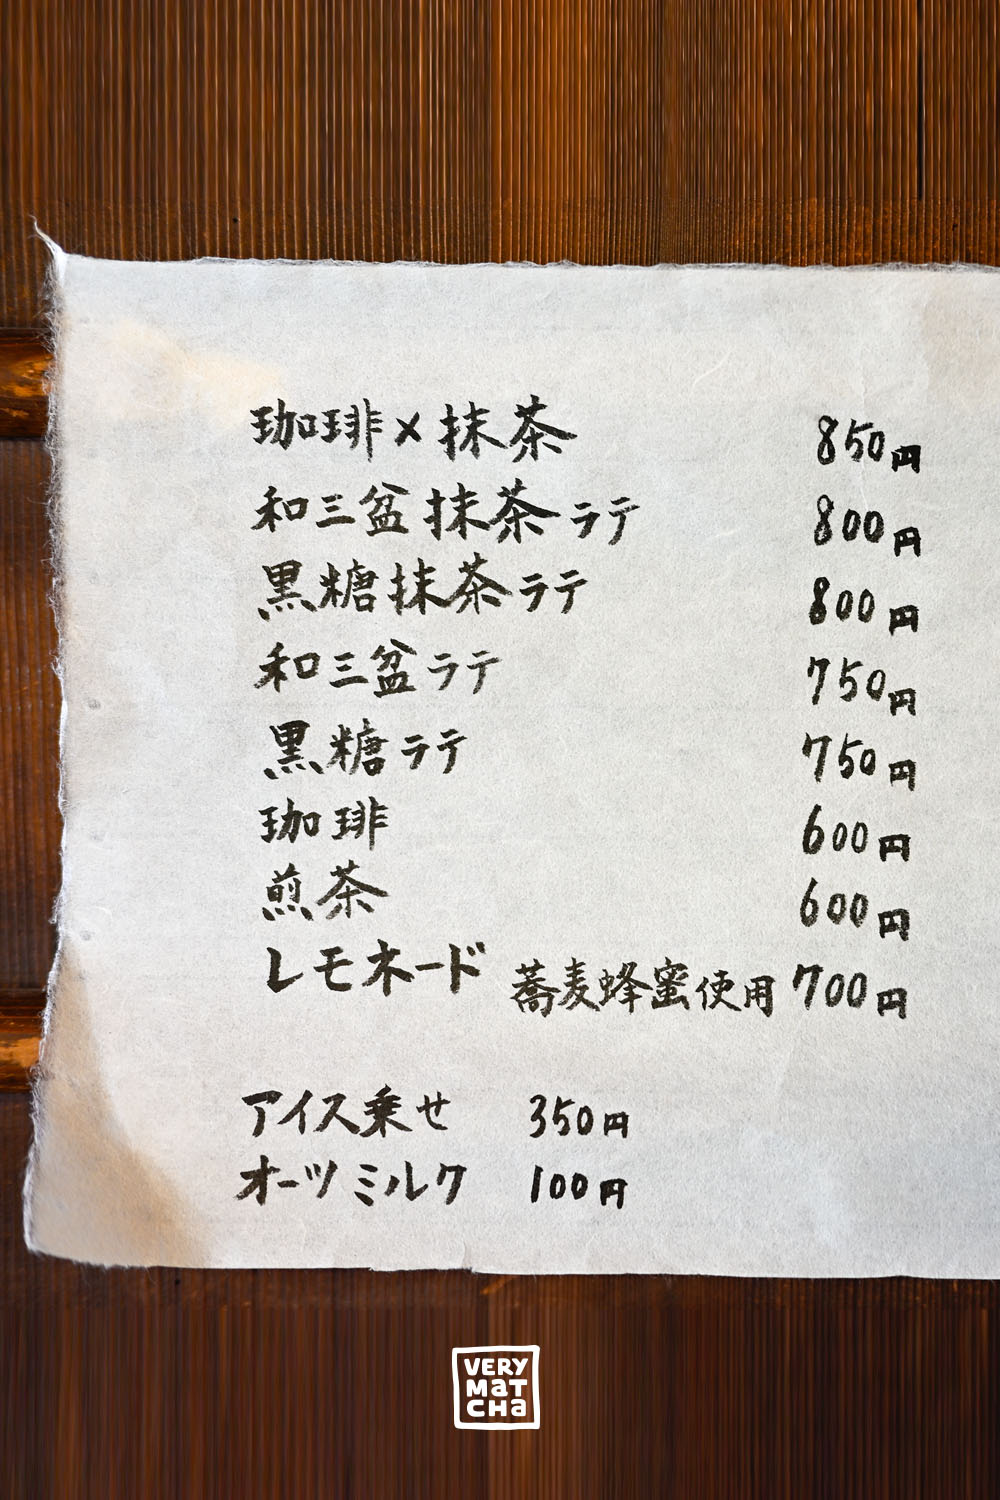 珈琲×抹茶 850円
和三盆抹茶ラテ 800円
黒糖抹茶ラテ 800円
和三盆ラテ 750円
黒糖ラテ 750円
珈琲 600円
煎茶 600円
レモネード 蕎麦蜂蜜使用 700円
アイス乗せ 350円
オーツミルク 100円
VERY
MaT
CHa